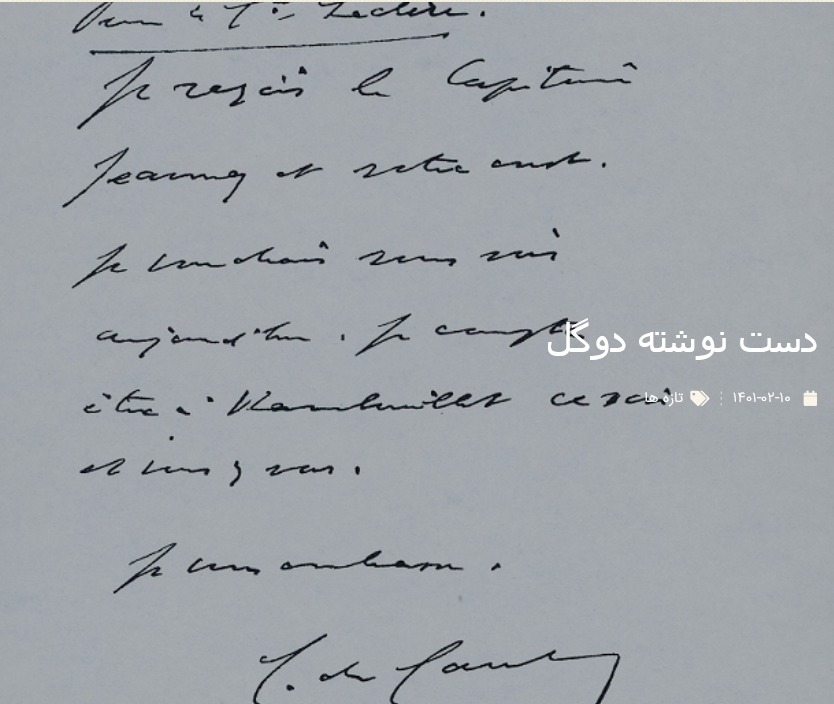 Pour le Gal Leclerc.
Je reçois le Capitaine
Janney et votre mot.
Je voudrais vous voir
aujourd'hui. Je compte
être à Rambouillet ce soir
et vous y voir.
Je vous embrasse.
C. de Gaulle
دست نوشته دوگل
۱۴۰۱-۰۲-۱۰ تازه ها